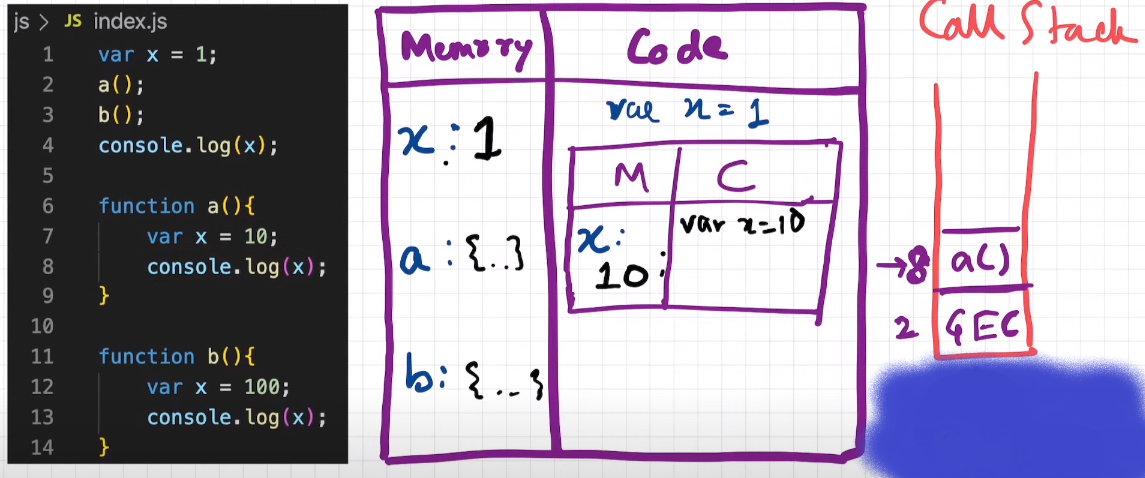 js > JS index.js
1 var x = 1;
2 a();
3 b();
4 console.log(x);
5
6 function a(){
7 var x = 10;
8 console.log(x);
9 }
10
11 function b(){
12 var x = 100;
13 console.log(x);
14 }
Memory
Code
x: 1
a : {..}
b: {...}
var x = 1
M
C
x:
10:
var x=10
Call Stack
→8 a()
2 GEC